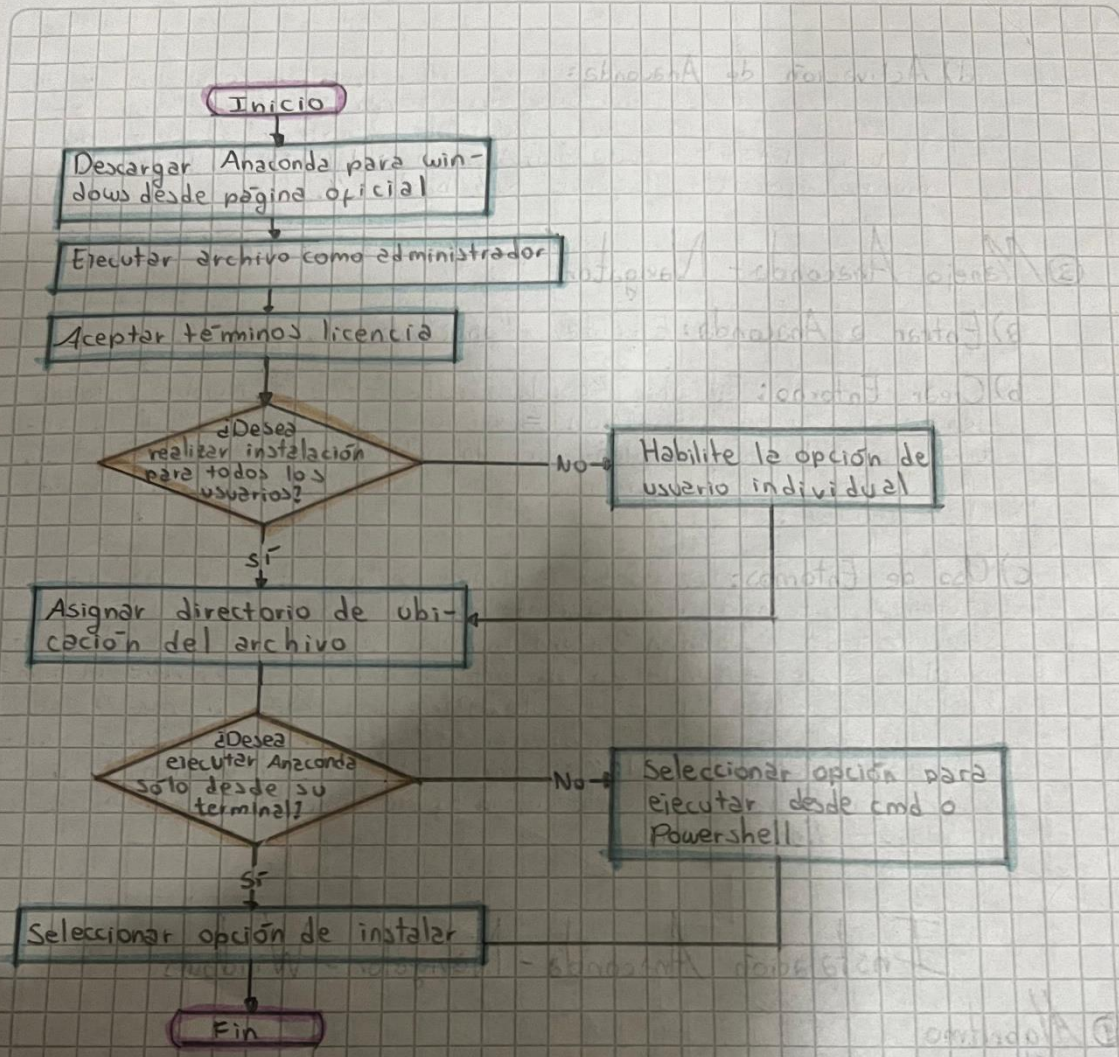 Inicio
Descargar Anaconda para win-
dows desde página oficial
Ejecutar archivo como administrador
Aceptar términos licencia
¿Desea
realizar instalación
para todos los
usuarios?
No
Habilite la opción de
usuario individual
sí
Asignar directorio de ubi-
cación del archivo
¿Desea
ejecutar Anaconda
sólo desde su
terminal?
No
Seleccionar opción para
ejecutar desde cmd o
Powershell
sí
Seleccionar opción de instalar
Fin